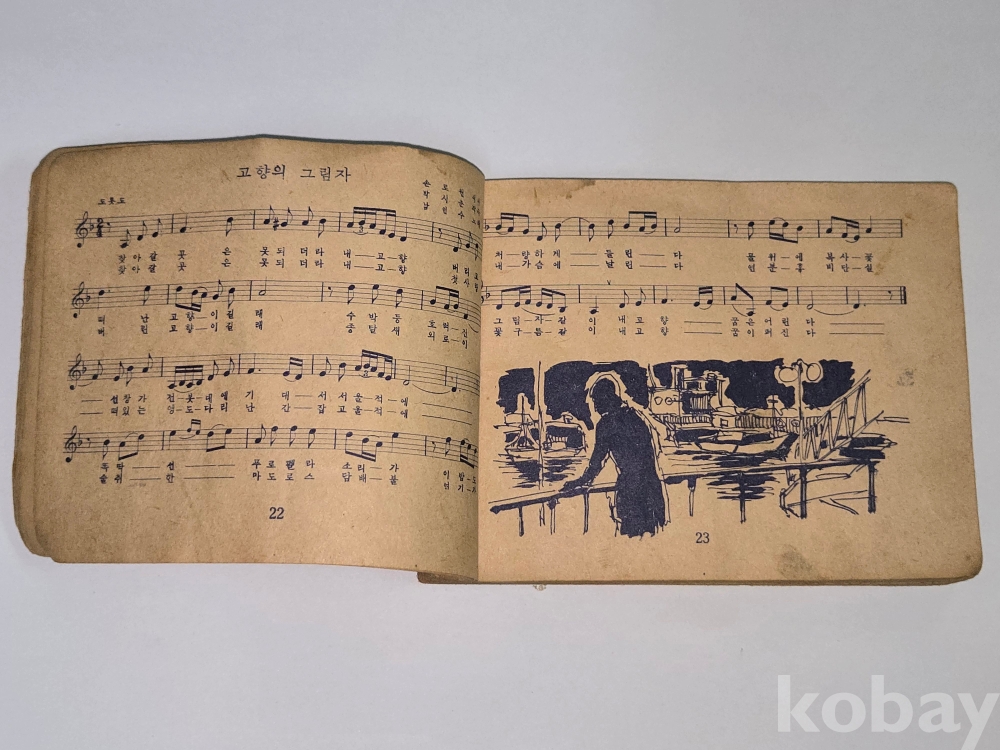 고향의 그림자
손 로 원 작사
남 인 수 노래
도롯도
찾아갈 곳 은 못되 더라 내 고향 버 리
찾아갈 곳 은 못되 더라 내 고향
떠 난 고향 이길 래 수 박 등
버 린 고향 이길 래 종 달 새 외 로 이
선창가 전봇대에 기 대 서 서 울 적 에
떠있는 영도다리 난 간 잡고 울 적 에
똑딱 선 푸로펠라 소리 가 이 밤 도
술취 한 마도로스 담배 불 연 기
처 량하게 들린 다 물 위 에 복사꽃
내 가슴 에 달린 다 연 분 홍 비단실
그림자 같 이 내고향 꿈은어린 다
꽃구름 같 이 내고향 꿈이퍼진 다
22
23
kobay